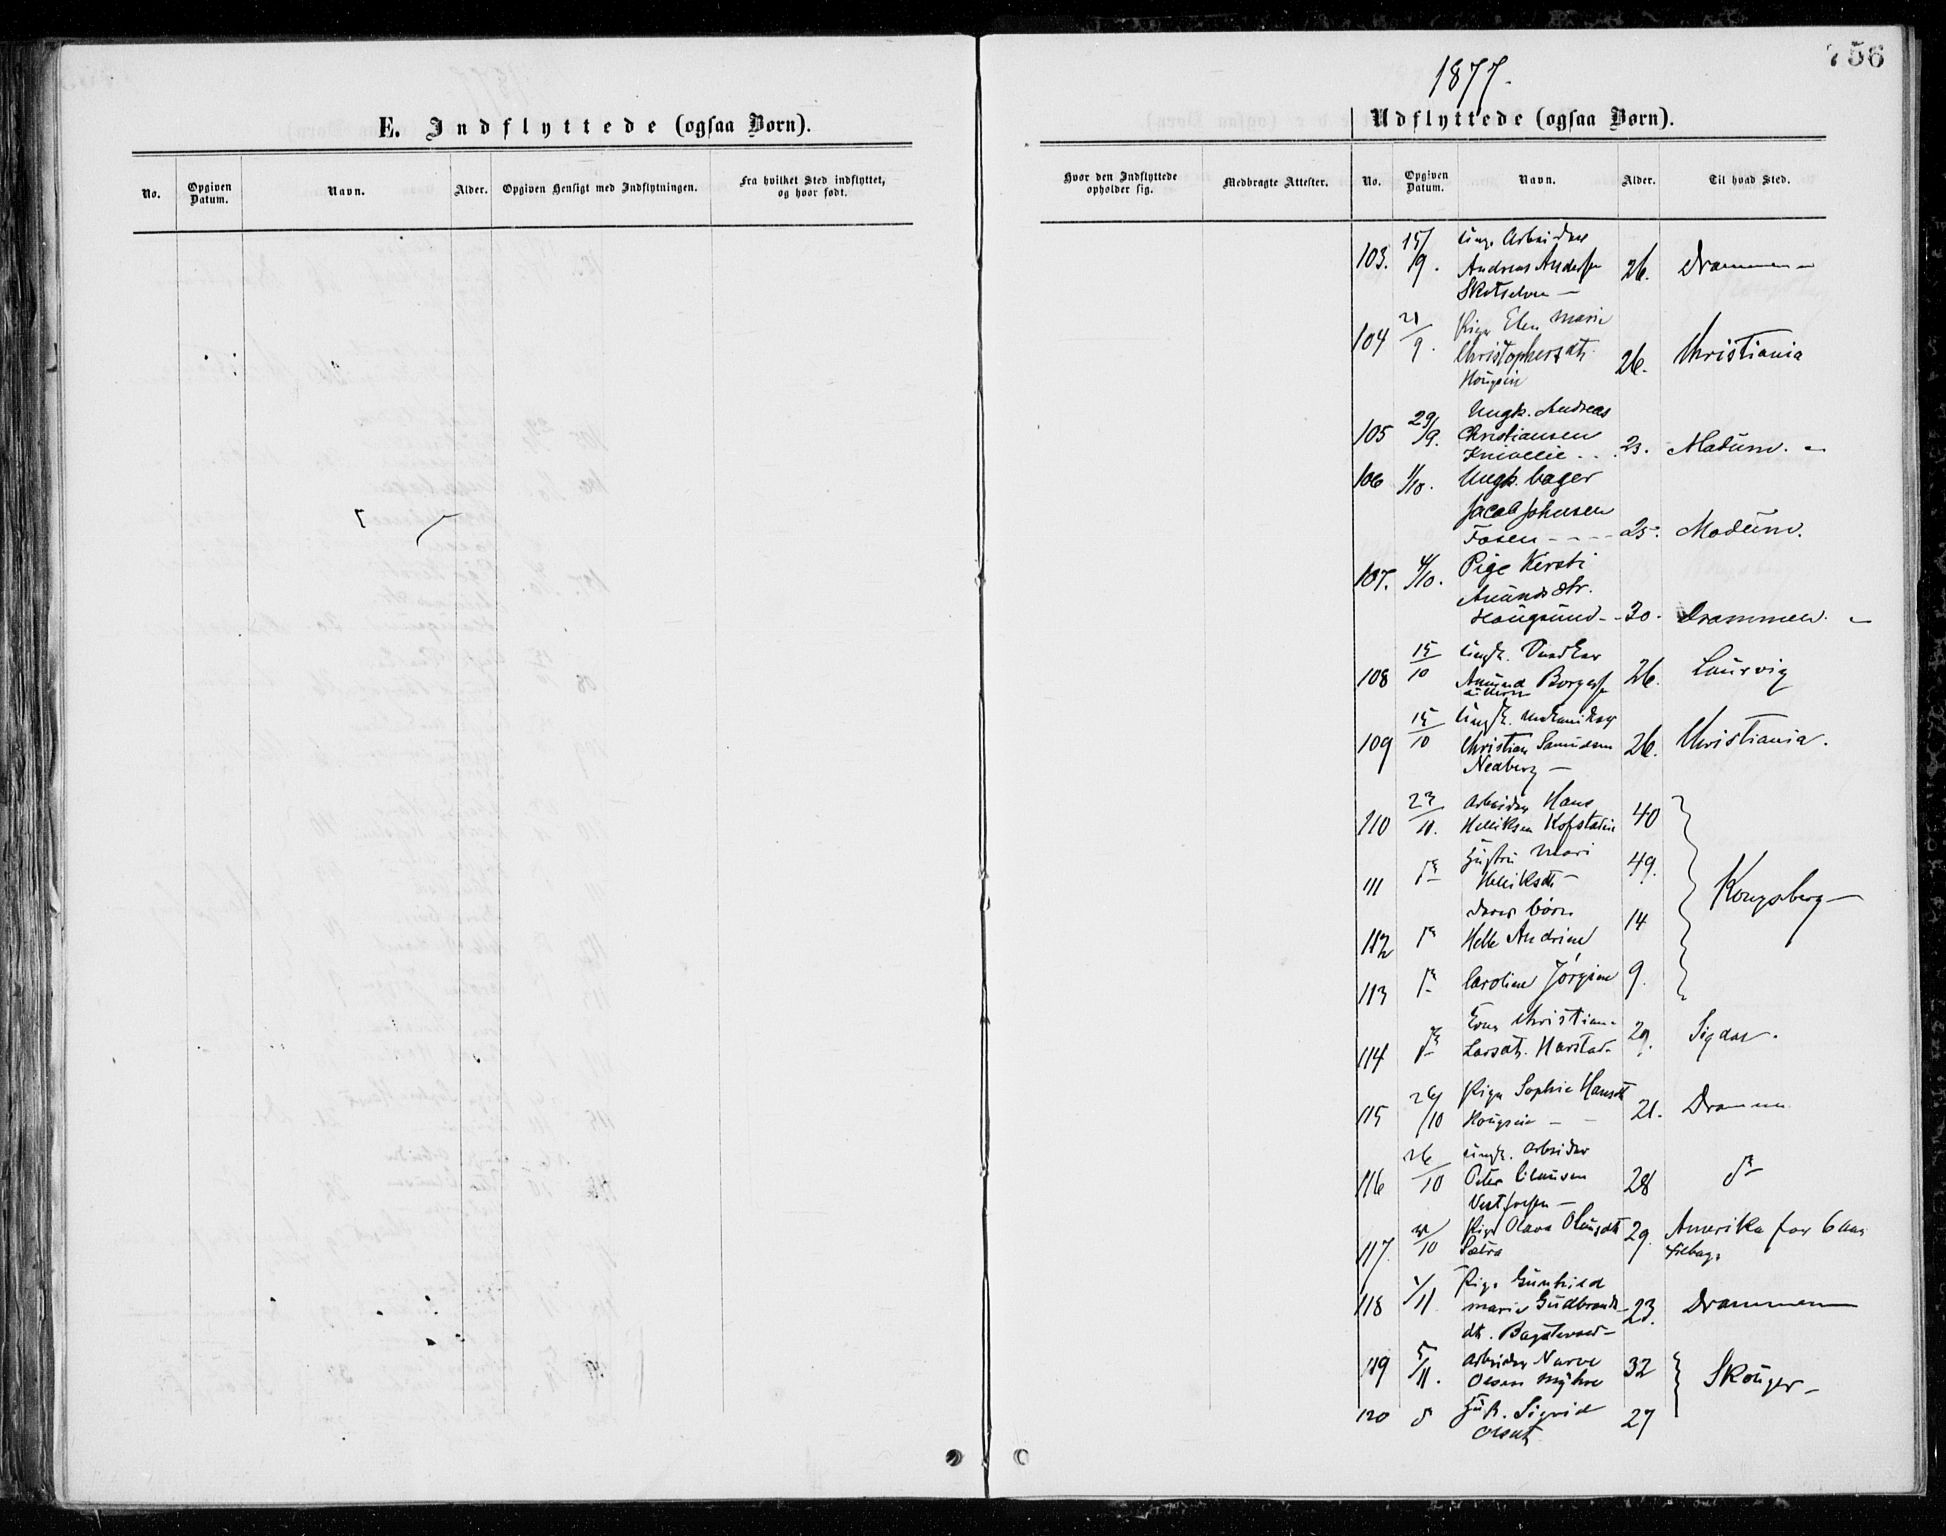 756
1877.
E. Indflyttede (ogsaa Børn).
No.
Opgiven Datum.
Navn.
Alder.
Opgiven Hensigt med Indflytningen.
Fra hvilket Sted indflyttet, og hvor født.
Udflyttede (ogsaa Børn).
Hvor den Indflyttede opholder sig.
Medbragte Attester.
No.
Opgiven Datum.
Navn.
Alder.
Til hvad Sted.
103. 15/9. Arbeider
Andreas Anders 26. Drammen
Skotselven —
104 21/9. Pige Elen Marie
Christophersdtr. 26. Christiania
Hougsun
105 29/9. Ungk. Andreas
Christiansen
23. Modum.
106 1/10. Ungk. bager
Jacob Johnsen
Fosen - - - - 25. Modum.
107. 4/10. Pige Kersti
Amundsdtr.
Hougsund - - 30. Drammen.
108 15/10 Ungk.
Amund Borges 26. Laurvig
109 15/10 Ungk.
Christian 26. Christiania.
Nedberg —
110 23/11. Arbeider Hans
Helliksen 40
111 Hustru Mari 49.
Helliksdtr —
Kongsberg —
deres børn
112 Helle Andrine 14
113 Caroline Jørgine 9.
114 Christian
Larsdtr. 29. Sigdal.
115 26/10 Pige Sophie Hansdtr
21. Drammen
116 26/10 Ungk. Arbeider
Peter Clausen 28
Vestfossen —
117. /10 Pige Olava 29. Amerika for 6 aar
Sætra tilbage
118 /11. Pige Gunhild
Marie Gudbrands- 23. Drammen
dtr.
119 5/11. Arbeider Narve 32
Olsen Myhre Skouger —
120 Sigrid 27
Olsdtr